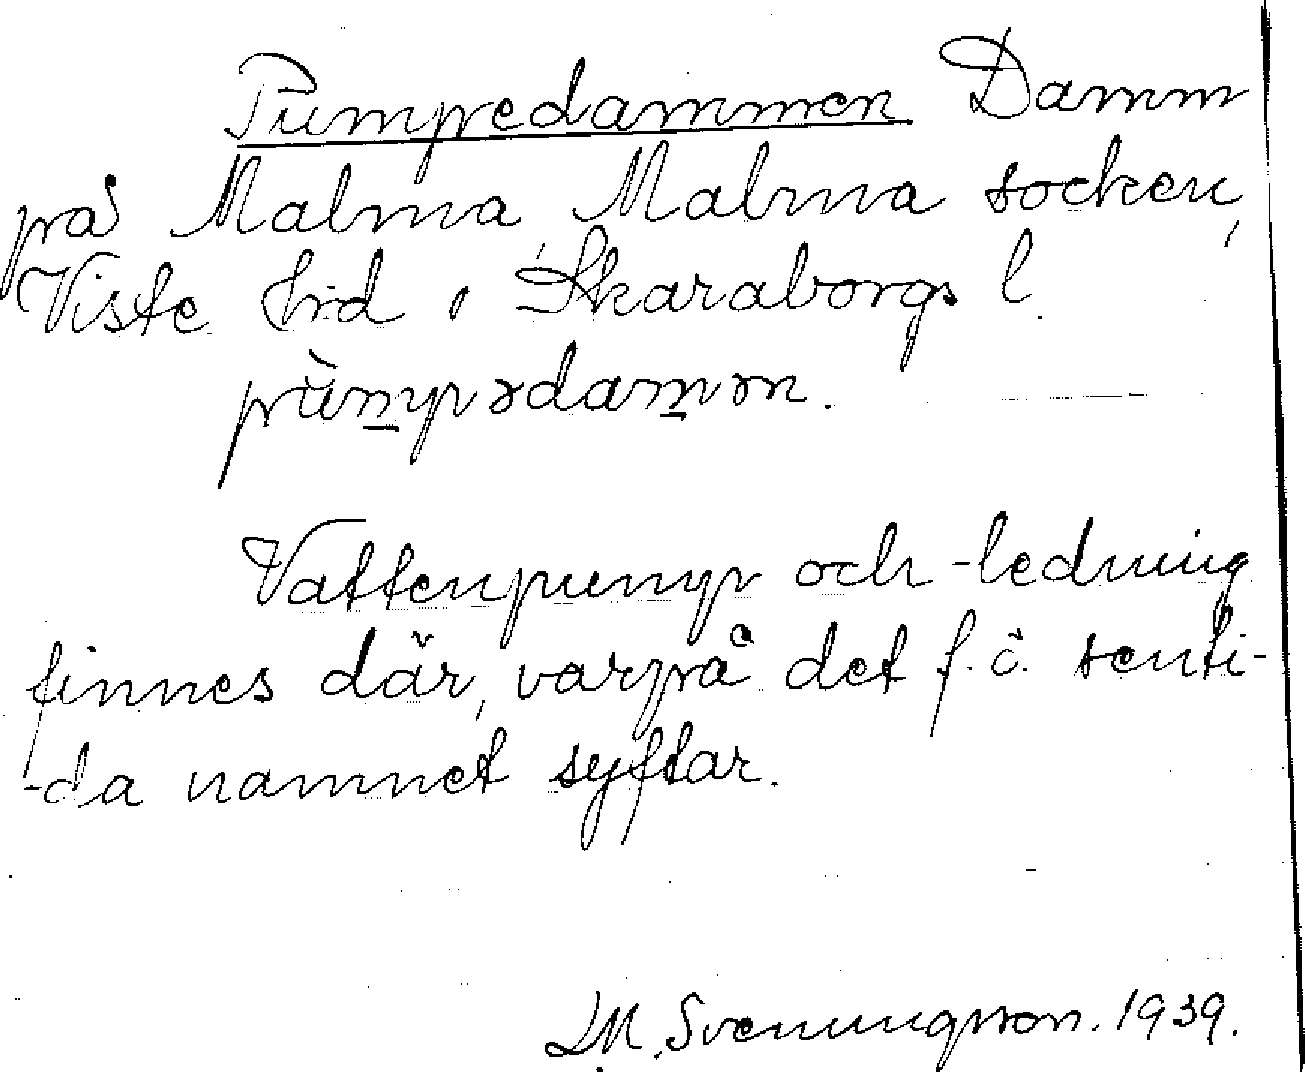 Pumpedammen Damm
på Malma, Malma socken,
Viste hrd, Skaraborgs l.
pùm̲pədam̲ən.
Vattenpump och -ledning
finnes där, varpå det f. ö. senti-
-da namnet syftar.
M. Sveningsson. 1939.